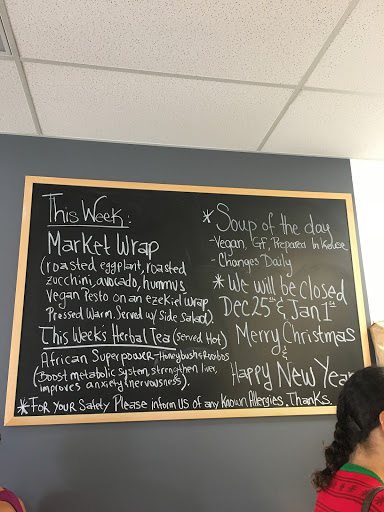 This Week:
Market Wrap
(roasted eggplant, roasted
zucchini, avocado, hummus,
Vegan Pesto on an ezekiel wrap
Pressed Warm. Served w/ Side Salad).
This Week's Herbal Tea (served Hot)
African Superpower - Honeybush & Rooibos
(Boost metabolic system, strengthen liver,
improves anxiety & nervousness).
* Soup of the day
- Vegan, GF, Prepared In House
- Changes Daily
* We will be closed
Dec 25th & Jan 1st
Merry Christmas
&
Happy New Year
* For Your Safety Please inform Us of any Known Allergies. Thanks.